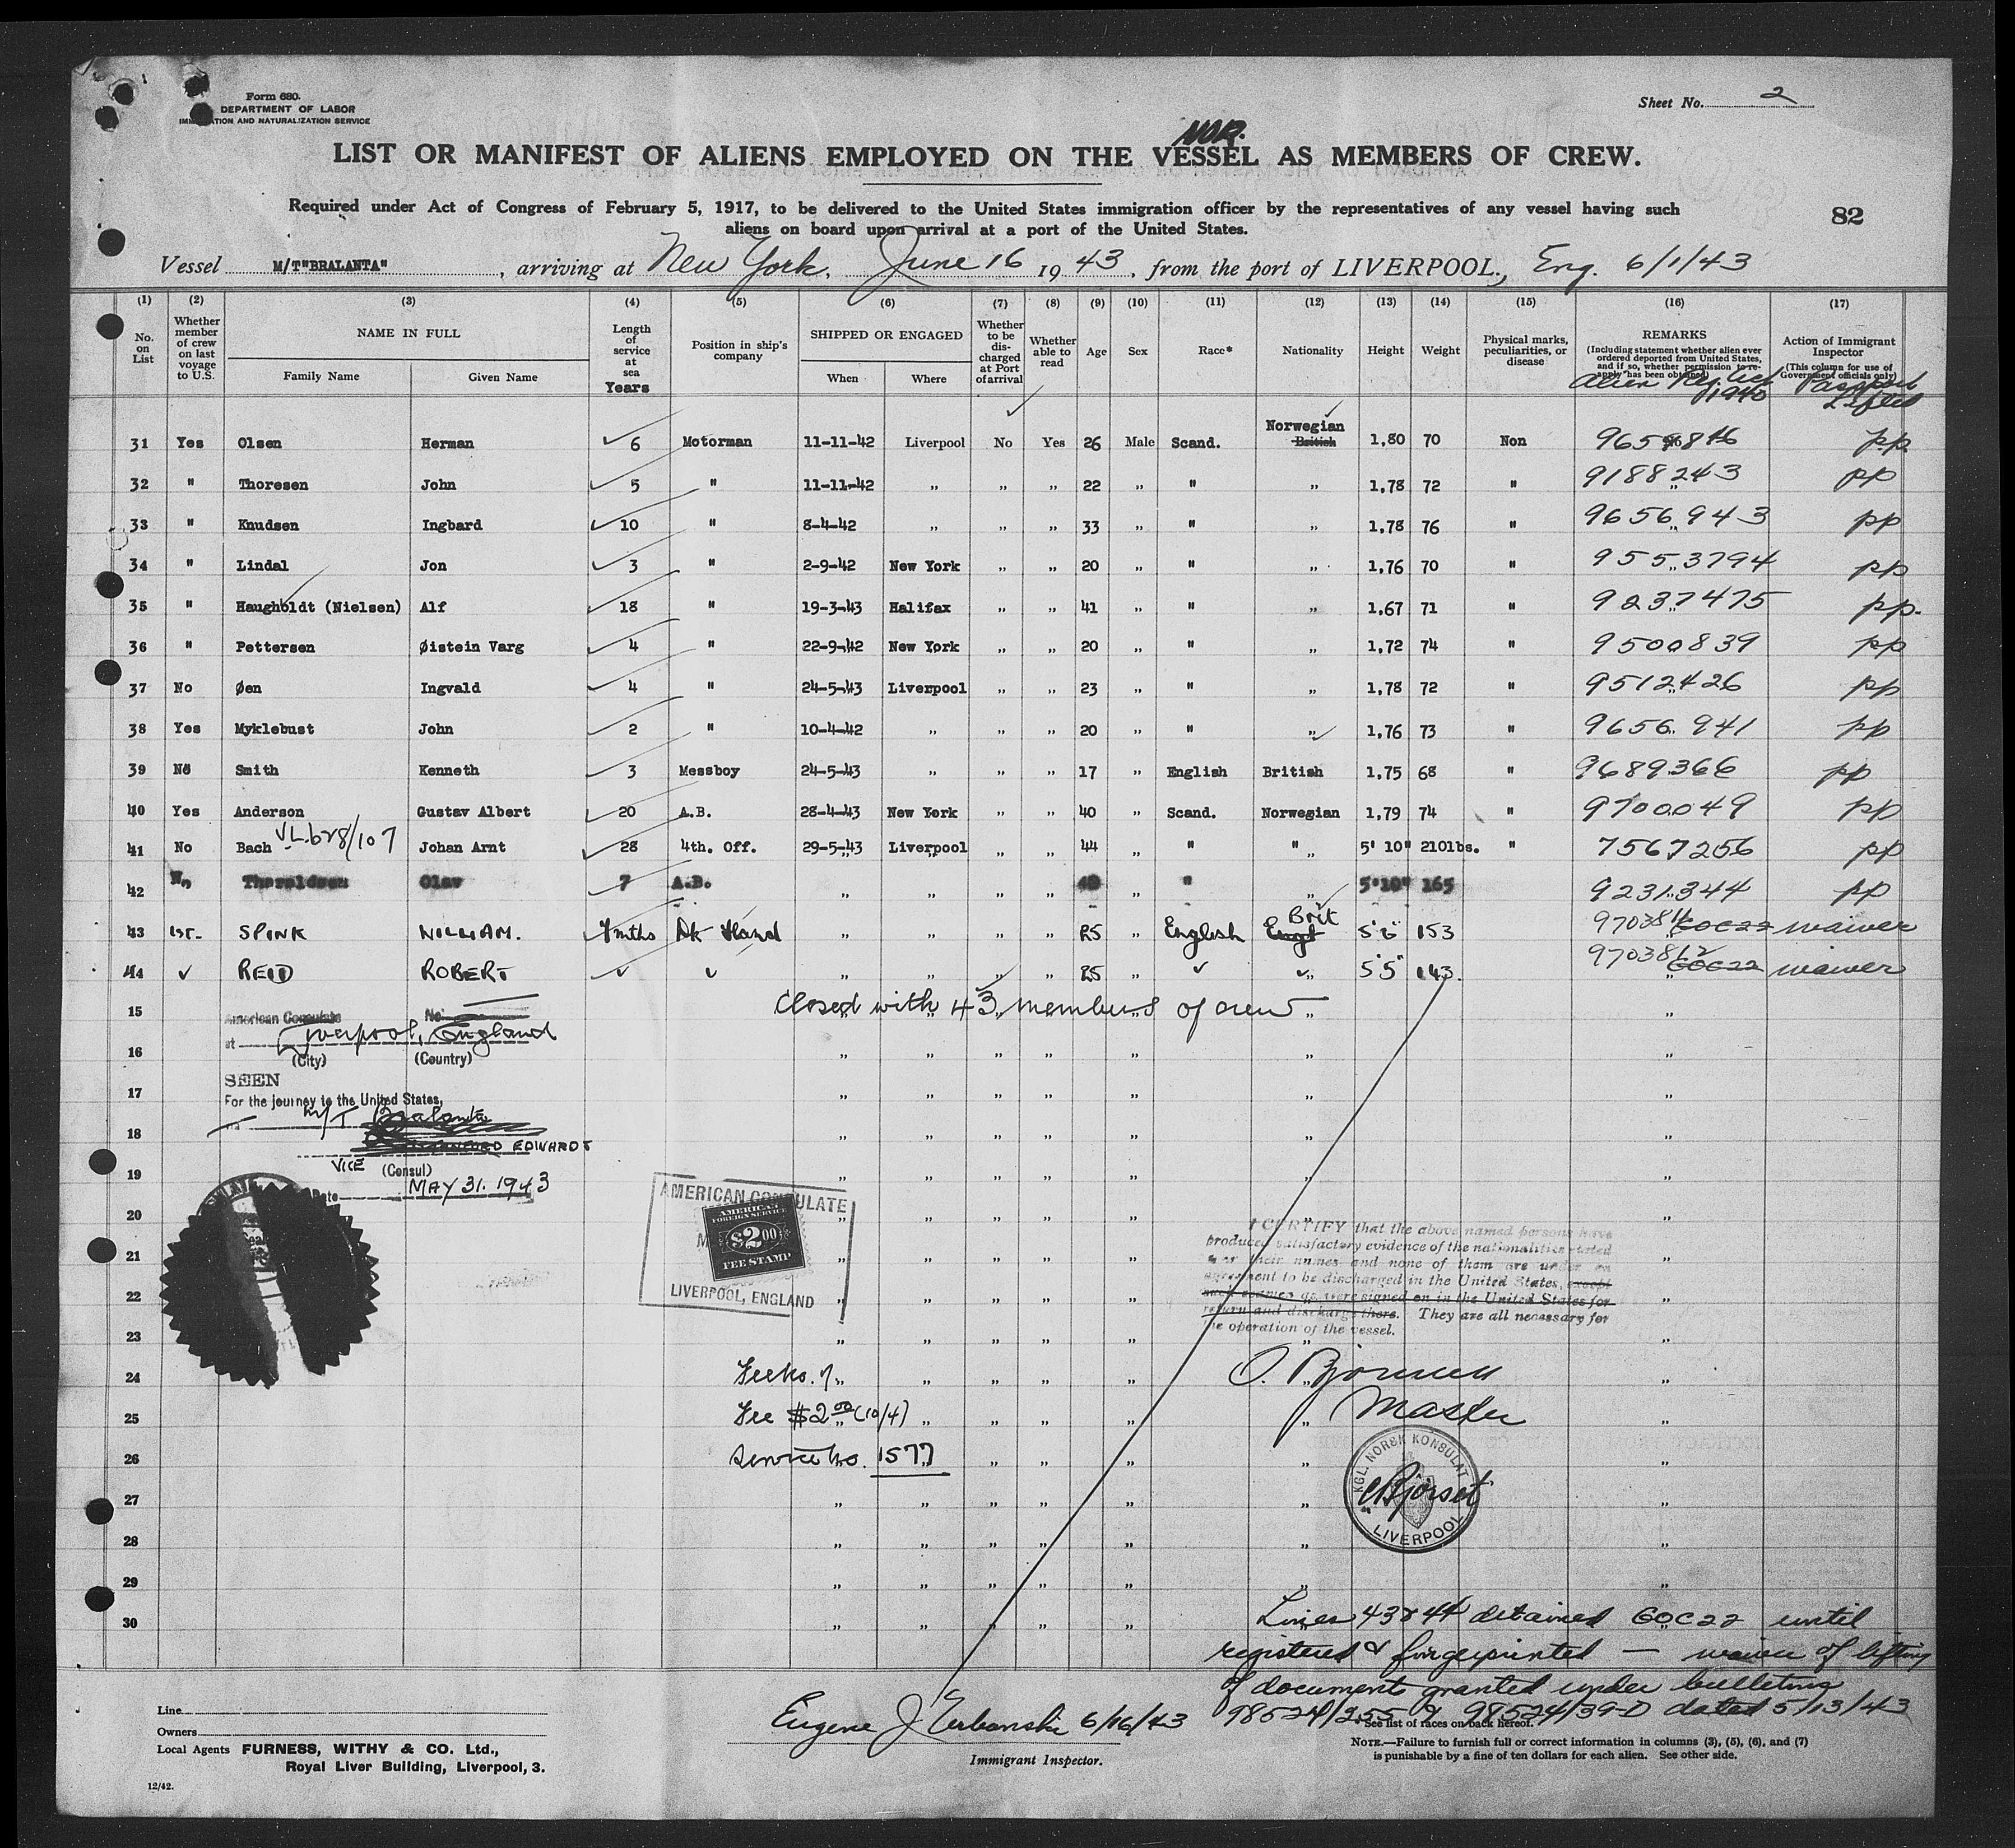 Form 680.
DEPARTMENT OF LABOR
IMMIGRATION AND NATURALIZATION SERVICE
Sheet No. 2
NOR.
LIST OR MANIFEST OF ALIENS EMPLOYED ON THE VESSEL AS MEMBERS OF CREW.
Required under Act of Congress of February 5, 1917, to be delivered to the United States immigration officer by the representatives of any vessel having such
aliens on board upon arrival at a port of the United States.
82
Vessel M/T"BRALANTA", arriving at New York, June 16 1943, from the port of LIVERPOOL, Eng. 6/1/43
(1) (2) (3) (4) (5) (6) (7) (8) (9) (10) (11) (12) (13) (14) (15) (16) (17)
No. on List | Whether member of crew on last voyage to U.S. | NAME IN FULL Family Name Given Name | Length of service at sea Years | Position in ship's company | SHIPPED OR ENGAGED When Where | Whether to be discharged at Port of arrival | Whether able to read | Age | Sex | Race* | Nationality | Height | Weight | Physical marks, peculiarities, or disease | REMARKS (Including statement whether alien ever ordered deported from United States, and if so, whether permission to re-apply has been obtained) Alien Reg. Act 1940 | Action of Immigrant Inspector (This column for use of Government officials only) Passport Lifted
31 Yes Olsen Herman 6 Motorman 11-11-42 Liverpool No Yes 26 Male Scand. Norwegian British 1,80 70 Non pp.
32 " Thoresen John 5 " 11-11-42 " " " 22 " " " 1,78 72 " 9188243 pp
33 " Knudsen Ingbard 10 " 8-4-42 " " " 33 " " " 1,78 76 " 9656943 pp
34 " Lindal Jon 3 " 2-9-42 New York " " 20 " " " 1,76 70 " 9553794 pp
35 " Haugholdt (Nielsen) Alf 18 " 19-3-43 Halifax " " 41 " " " 1,67 71 " 9237475 pp.
36 " Pettersen Øistein Varg 4 " 22-9-42 New York " " 20 " " " 1,72 74 " 9500839 pp
37 No Øen Ingvald 4 " 24-5-43 Liverpool " " 23 " " " 1,78 72 " 9512426 pp
38 Yes Myklebust John 2 " 10-4-42 " " " 20 " " " 1,76 73 " 9656941 pp
39 No Smith Kenneth 3 Messboy 24-5-43 " " " 17 " English British 1,75 68 " 9689366 pp
40 Yes Anderson Gustav Albert 20 A.B. 28-4-43 New York " " 40 " Scand. Norwegian 1,79 74 " 9700049 pp
41 No Bach V.L.628/107 Johan Arnt 28 4th. Off. 29-5-43 Liverpool " " 44 " " " 5' 10" 210lbs. " 7567256 pp
42 No Thoraldsen Olav 7 A.B. " " " " " " " 5'10" 165 9231344 pp
43 1st. SPINK WILLIAM. 7 mths Dk Hand " " " " 25 " English Brit Engl 153 9703811 GOC22 waiver
44 ✓ REID ROBERT ✓ ✓ " " " " 25 " ✓ " 5'5" 143. 9703812 GOC22 waiver
15 Closed with 43 members of crew
American Consulate No.
at Liverpool, England
16 (City) (Country)
SEEN
17 For the journey to the United States,
M/T Bralanta
18 EDWARDS
VICE (Consul)
19
Date MAY 31. 1943
AMERICAN CONSULATE
20
AMERICAN FOREIGN SERVICE
$2.00
FEE STAMP
21
LIVERPOOL, ENGLAND
22
I CERTIFY that the above named persons have
produced satisfactory evidence of the nationalities stated
their names and none of them are under an
agreement to be discharged in the United States, except
such seamen as were signed on in the United States for
return and discharge there. They are all necessary for
the operation of the vessel.
23
24
25 Fee $2.00 (10/4)
Master
26 Service No. 1577
KGL. NORSK KONSULAT
LIVERPOOL
27
28
29
30
Lines 43 & 44 detained GOC22 until
registered & fingerprinted — waiver of lifting
of documents granted under bulletins
98524/255 & 98524/39-D dated 5/13/43
Eugene J. Urbanski 6/16/43
Immigrant Inspector.
Line
Owners
Local Agents FURNESS, WITHY & CO. Ltd.,
Royal Liver Building, Liverpool, 3.
12/42.
* See list of races on back hereof.
NOTE.—Failure to furnish full or correct information in columns (3), (5), (6), and (7)
is punishable by a fine of ten dollars for each alien. See other side.